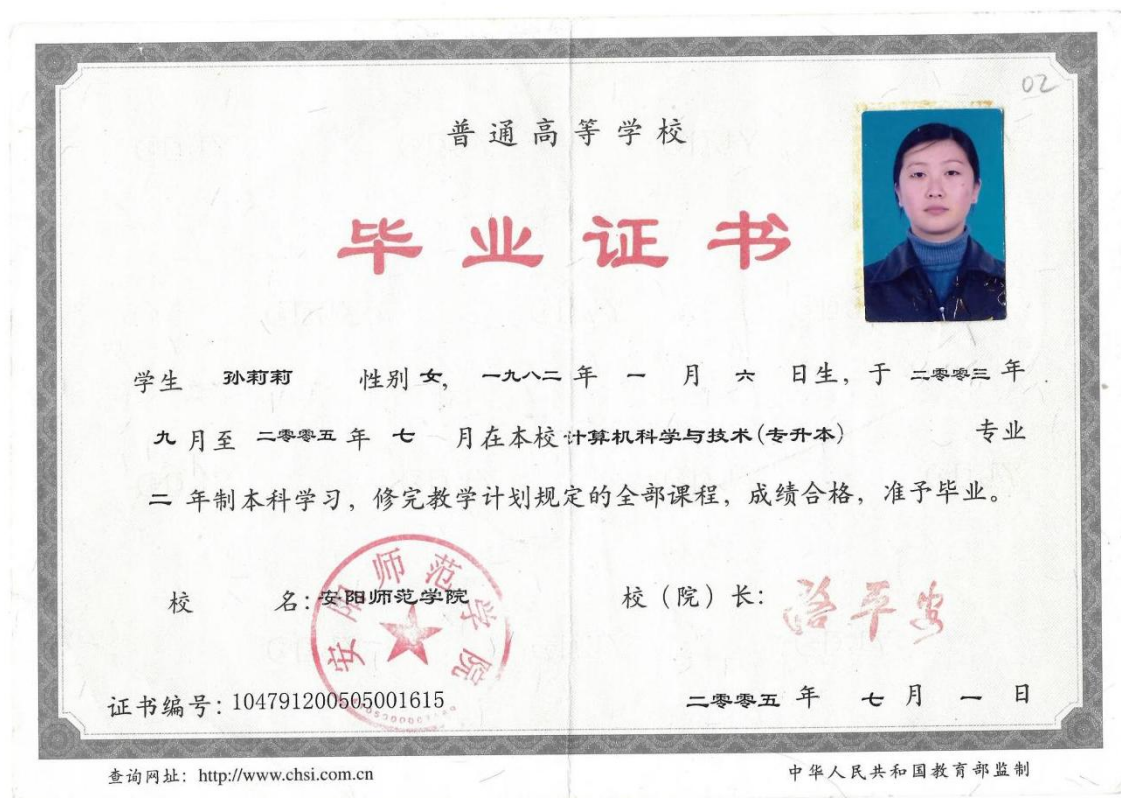 02
普通高等学校
毕业证书
学生 孙莉莉 性别 女, 一九八二 年 一 月 六 日生, 于 二零零三 年
九 月至 二零零五 年 七 月在本校 计算机科学与技术(专升本) 专业
二 年制本科学习, 修完教学计划规定的全部课程, 成绩合格, 准予毕业。
校 名: 安阳师范学院
安阳师范学院
校(院)长:
证书编号: 104791200505001615
二零零五 年 七 月 一 日
查询网址: http://www.chsi.com.cn
中华人民共和国教育部监制